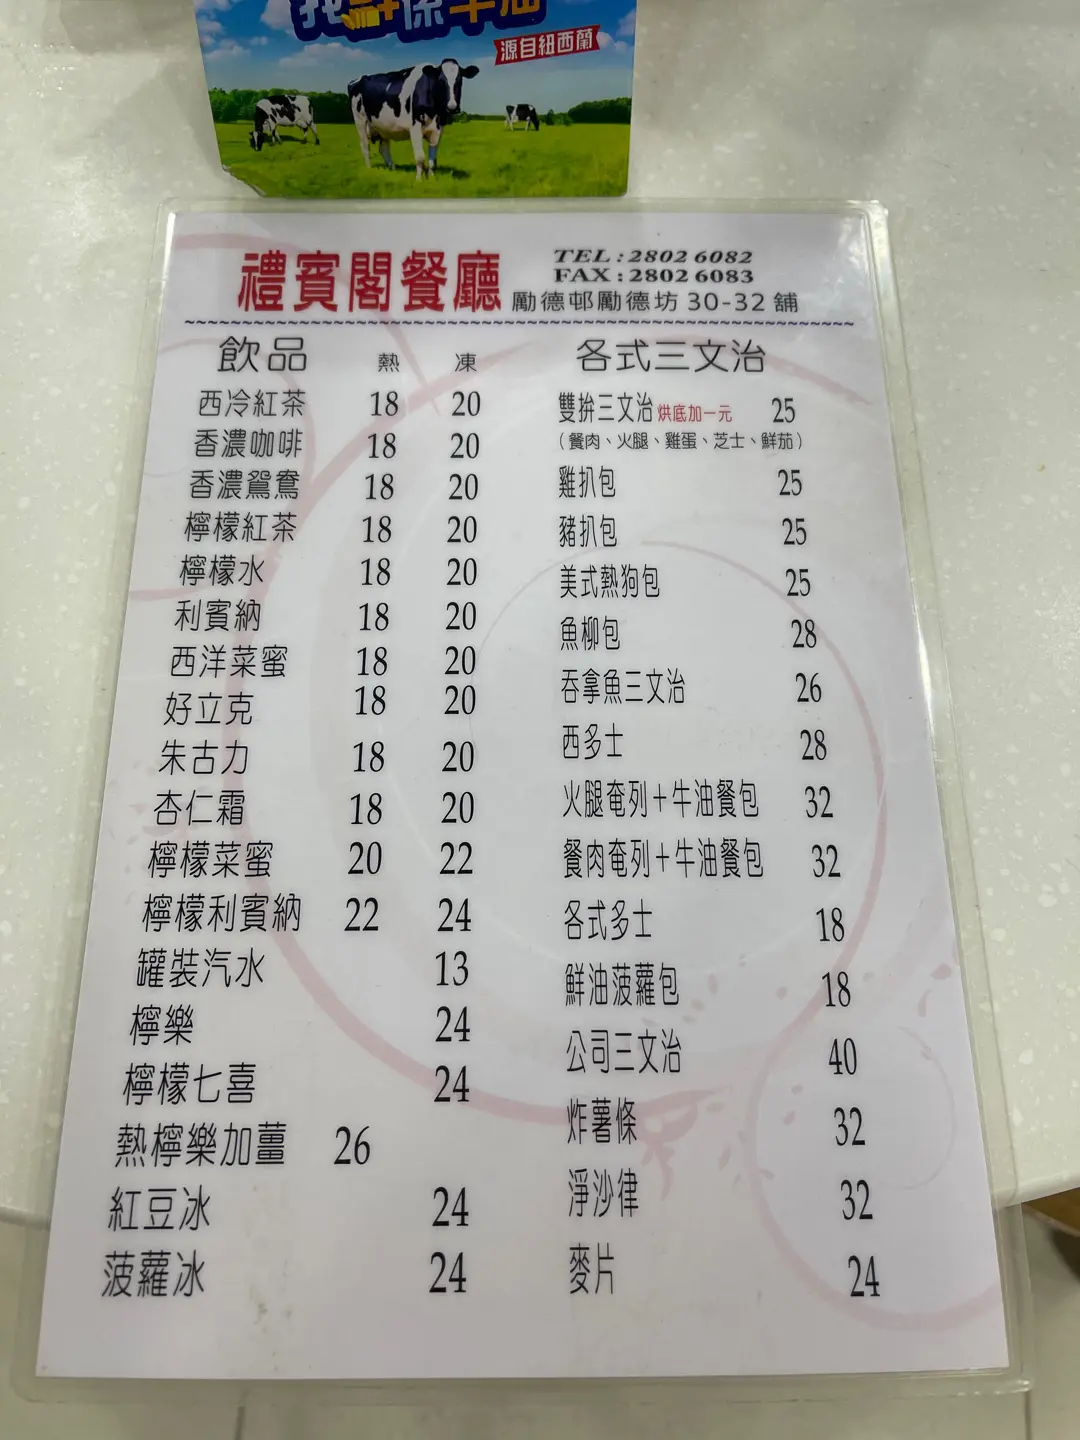 源自紐西蘭
禮賓閣餐廳
TEL:2802 6082
FAX:2802 6083
勵德邨勵德坊 30-32 舖
飲品 熱 凍
西冷紅茶 18 20
香濃咖啡 18 20
香濃鴛鴦 18 20
檸檬紅茶 18 20
檸檬水 18 20
利賓納 18 20
西洋菜蜜 18 20
好立克 18 20
朱古力 18 20
杏仁霜 18 20
檸檬菜蜜 20 22
檸檬利賓納 22 24
罐裝汽水 13
檸樂 24
檸檬七喜 24
熱檸樂加薑 26
紅豆冰 24
菠蘿冰 24
各式三文治
雙拚三文治 烘底加一元 25
(餐肉、火腿、雞蛋、芝士、鮮茄)
雞扒包 25
豬扒包 25
美式熱狗包 25
魚柳包 28
吞拿魚三文治 26
西多士 28
火腿奄列+牛油餐包 32
餐肉奄列+牛油餐包 32
各式多士 18
鮮油菠蘿包 18
公司三文治 40
炸薯條 32
淨沙律 32
麥片 24